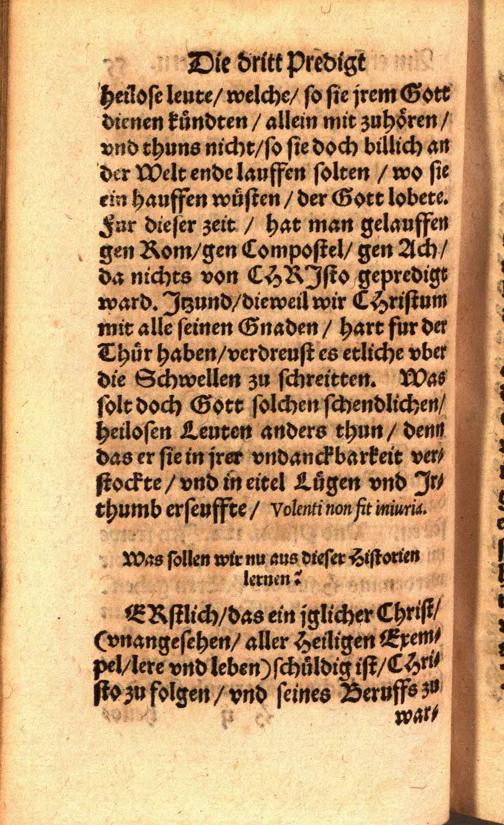 Die dritt Predigt
heilose leute/ welche/ so sie jrem Gott
dienen kündten / allein mit zuhören /
vnd thuns nicht/so sie doch billich an
der Welt ende lauffen solten / wo sie
ein hauffen wüsten / der Gott lobete.
Fur dieser zeit / hat man gelauffen
gen Rom/gen Compostel/ gen Ach/
da nichts von CHRJsto gepredigt
ward. Jtzund/dieweil wir CHristum
mit alle seinen Gnaden / hart fur der
Thür haben/verdreust es etliche vber
die Schwellen zu schreitten. Was
solt doch Gott solchen schendlichen/
heilosen Leuten anders thun / denn
das er sie in jrer vndanckbarkeit ver⸗
stockte / vnd in eitel Lügen vnd Jr⸗
thumb erseuffte / Volenti non fit iniuria.
Was sollen wir nu aus dieser Historien
lernen?
ERstlich/das ein jglicher Christ/
(vnangesehen/ aller Heiligen Exem⸗
pel/lere vnd leben)schüldig ist/CHri⸗
sto zu folgen / vnd seines Beruffs zu
war⸗